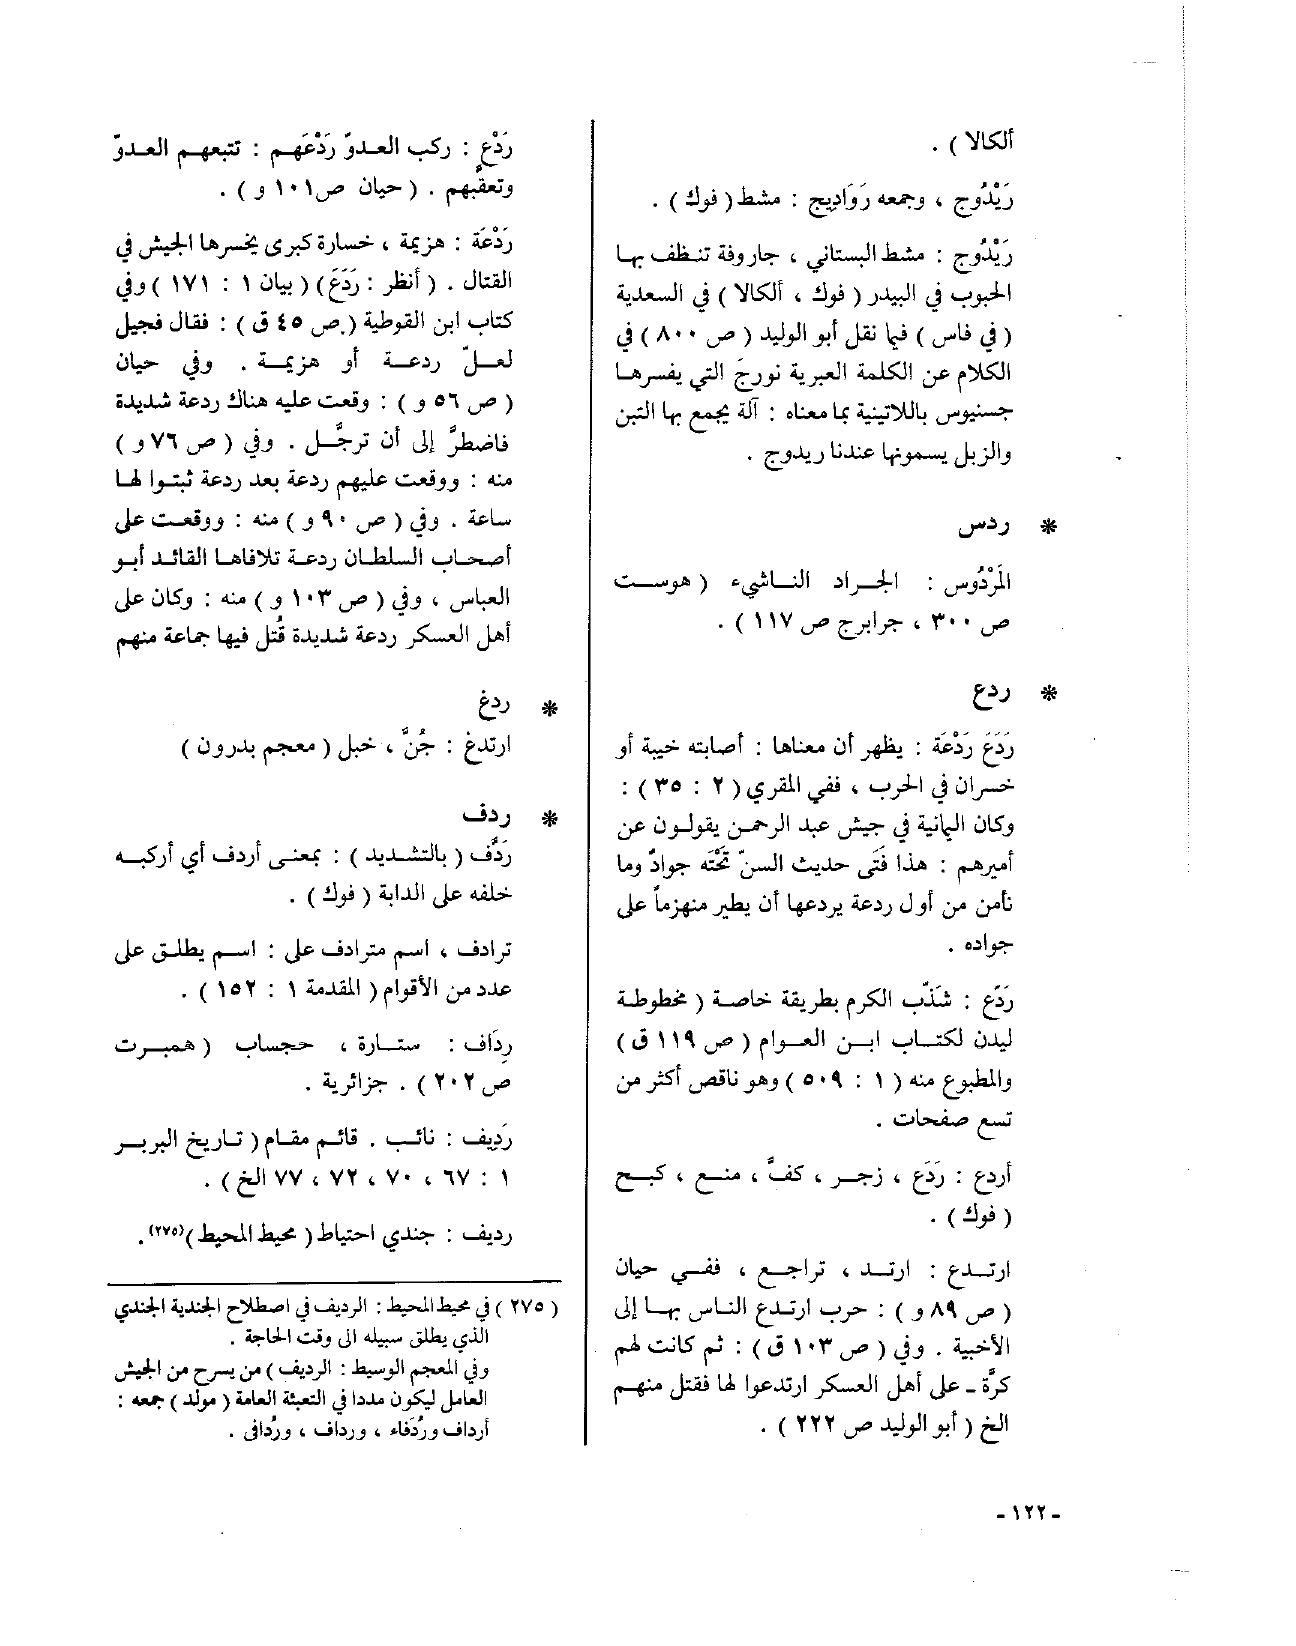 ألكالا) .
رَيْدُوج ، وجمعه رَوَاديج : مشط (فوك) .
رَيْدُوج : مشط البستاني ، جاروفة تنظف بها
الحبوب في البيدر (فوك ، ألكالا) في السعدية
(في فاس) فيما نقل أبو الوليد (ص ٨٠٠) في
الكلام عن الكلمة العبرية نورجَ التي يفسرها
جسنيوس باللاتينية بما معناه : آلة يجمع بها التبن
والزبل يسمونها عندنا ريدوج .
* ردس
المَرْدُوس : الجراد الناشيء (هوست
ص ٣٠٠ ، جرابرج ص ١١٧) .
* ردع
رَدَعَ رَدْعَة : يظهر أن معناها : أصابته خيبة أو
خسران في الحرب ، ففي المقري (٢ : ٣٥) :
وكان اليمانية في جيش عبد الرحمن يقولون عن
أميرهم : هذا فَتَى حديث السنّ تَحْتَه جوادٌ وما
نأمن من أول ردعة يردعها أن يطير منهزماً على
جواده .
رَدَّع : شَذَّب الكرم بطريقة خاصة (مخطوطة
ليدن لكتاب ابن العوام (ص ١١٩ ق)
والمطبوع منه (١ : ٥٠٩) وهو ناقص أكثر من
تسع صفحات .
أردع : رَدَع ، زجر ، كفَّ ، منع ، كبح
(فوك) .
ارتدع : ارتد ، تراجع ، ففي حيان
(ص ٨٩ و) : حرب ارتدع الناس بها إلى
الأخبية . وفي (ص ١٠٣ ق) : ثم كانت لهم
كرَّة ـ على أهل العسكر ارتدعوا لها فقتل منهم
الخ (أبو الوليد ص ٢٢٢) .
رَدْع : ركب العدوّ رَدْعَهم : تتبعهم العدوّ
وتعقبهم . (حيان ص ١٠١ و) .
رَدْعَة : هزيمة ، خسارة كبرى يخسرها الجيش في
القتال . (أنظر : رَدَعَ) (بيان ١ : ١٧١) وفي
كتاب ابن القوطية (ص ٤٥ ق) : فقال فجيل
لعلّ ردعة أو هزيمة . وفي حيان
(ص ٥٦ و) : وقعت عليه هناك ردعة شديدة
فاضطرَّ إلى أن ترجَّل . وفي (ص ٧٦ و)
منه : ووقعت عليهم ردعة بعد ردعة ثبتوا لها
ساعة . وفي (ص ٩٠ و) منه : ووقعت على
أصحاب السلطان ردعة تلافاها القائد أبو
العباس ، وفي (ص ١٠٣ و) منه : وكان على
أهل العسكر ردعة شديدة قُتل فيها جماعة منهم
* ردغ
ارتدغ : جُنَّ ، خبل (معجم بدرون)
* ردف
رَدَّف (بالتشديد) : بمعنى أردف أي أركبه
خلفه على الدابة (فوك) .
ترادف ، اسم مترادف على : اسم يطلق على
عدد من الأقوام (المقدمة ١ : ١٥٢) .
رِدَاف : ستارة ، حجاب (همبرت
ص ٢٠٢) . جزائرية .
رَدِيف : نائب . قائم مقام (تاريخ البربر
١ : ٦٧ ، ٧٠ ، ٧٢ ، ٧٧ الخ) .
رديف : جندي احتياط (محيط المحيط)(٢٧٥) .
(٢٧٥) في محيط المحيط : الرديف في اصطلاح الجندية الجندي
الذي يطلق سبيله الى وقت الحاجة .
وفي المعجم الوسيط : الرديف) من يسرح من الجيش
العامل ليكون مددا في التعبئة العامة (مولد) جمعه :
أرداف ورُدَفاء ، ورداف ، ورُدافى .
- ١٢٢ -